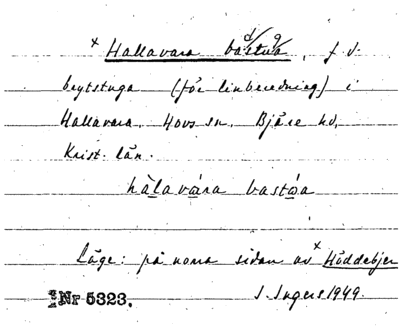 × Hallavara båstua, f.d.
brytstuga (för linberedning) i
Hallavara, Hovs sn, Bjäre hd,
Krist. län.
hàlavara bastoa
Läge: på norra sidan av × Höddebjer
Nr 5323. I. Ingers 1949.